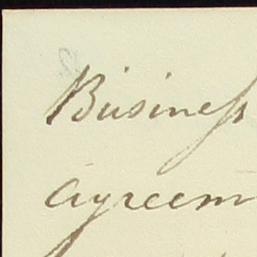 Business
agreem